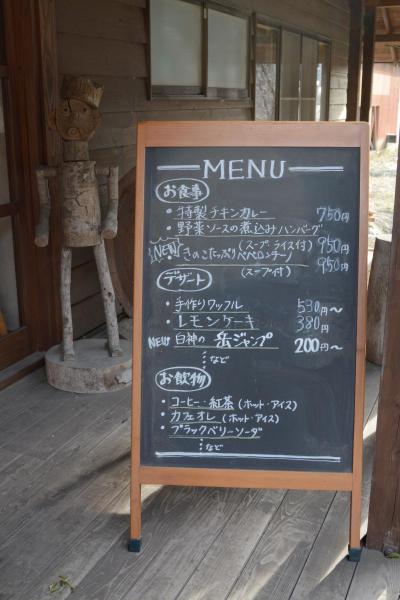 MENU
お食事
・特製チキンカレー 750円
・野菜ソースの煮込みハンバーグ
(スープ、ライス付) 950円
NEW きのこたっぷりペペロンチーノ
(スープ付) 950円
デザート
・手作りワッフル 530円〜
・レモンケーキ 380円
NEW 白神の岳ジャンプ 200円〜
⋮など
お飲物
・コーヒー・紅茶 (ホット・アイス)
・カフェオレ (ホット・アイス)
・ブラックベリーソーダ
⋮など